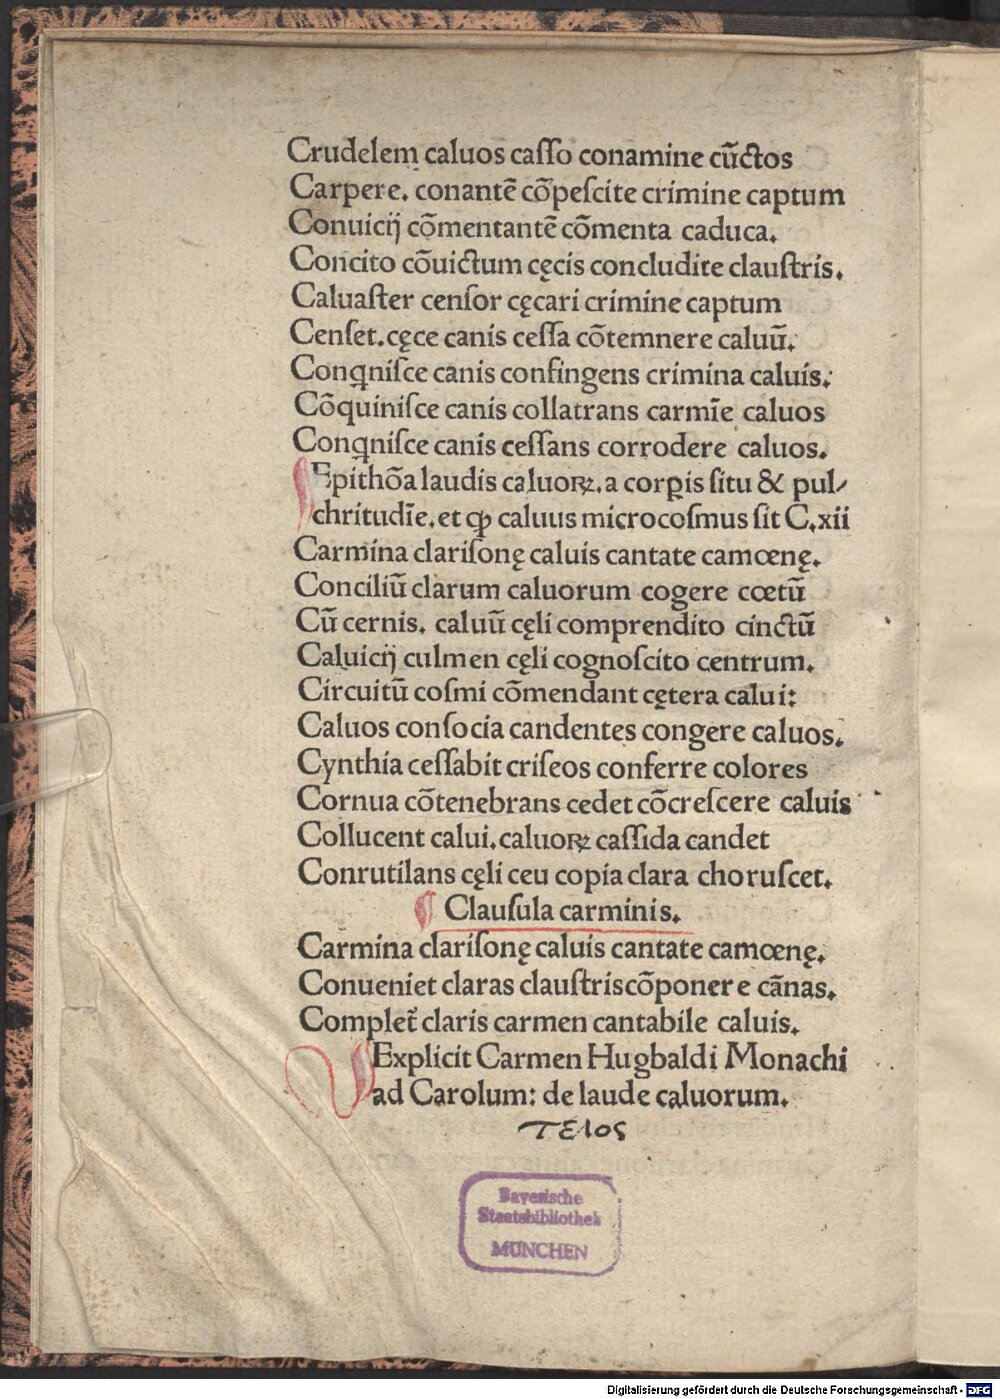 Crudelem caluos caſſo conamine cū̄ctos
Carpere. conantē cōpeſcite crimine captum
Conuicij cōmentantē cōmenta caduca.
Concito cōuictum cęcis concludite clauſtris.
Caluaſter cenſor cęcari crimine captum
Cenſet. cęce canis ceſſa cōtemnere caluū.
Conqniſce canis confingens crimina caluis:
Cōquiniſce canis collatrans carmīe caluos
Conqniſce canis ceſſans corrodere caluos.
Epithōa laudis caluoꝝ. a corꝑis ſitu & pul/
chritudīe. et ꝙ caluus microcoſmus ſit C.xii
Carmina clariſonę caluis cantate camœnę.
Conciliū clarum caluorum cogere cœtū
Cū cernis. caluū cęli comprendito cinctū
Caluicij culmen cęli cognoſcito centrum.
Circuitū coſmi cōmendant cętera calui:
Caluos conſocia candentes congere caluos.
Cynthia ceſſabit criſeos conferre colores
Cornua cōtenebrans cedet cōcreſcere caluis
Collucent calui. caluoꝝ caſſida candet
Conrutilans cęli ceu copia clara choruſcet.
Clauſula carminis.
Carmina clariſonę caluis cantate camœnę.
Conueniet claras clauſtris cōponere cānas.
Complet̄ claris carmen cantabile caluis.
Explicit Carmen Hugbaldi Monachi
ad Carolum: de laude caluorum.
τελος
Bayerische
Staatsbibliothek
MÜNCHEN
Digitalisierung gefördert durch die Deutsche Forschungsgemeinschaft - DFG